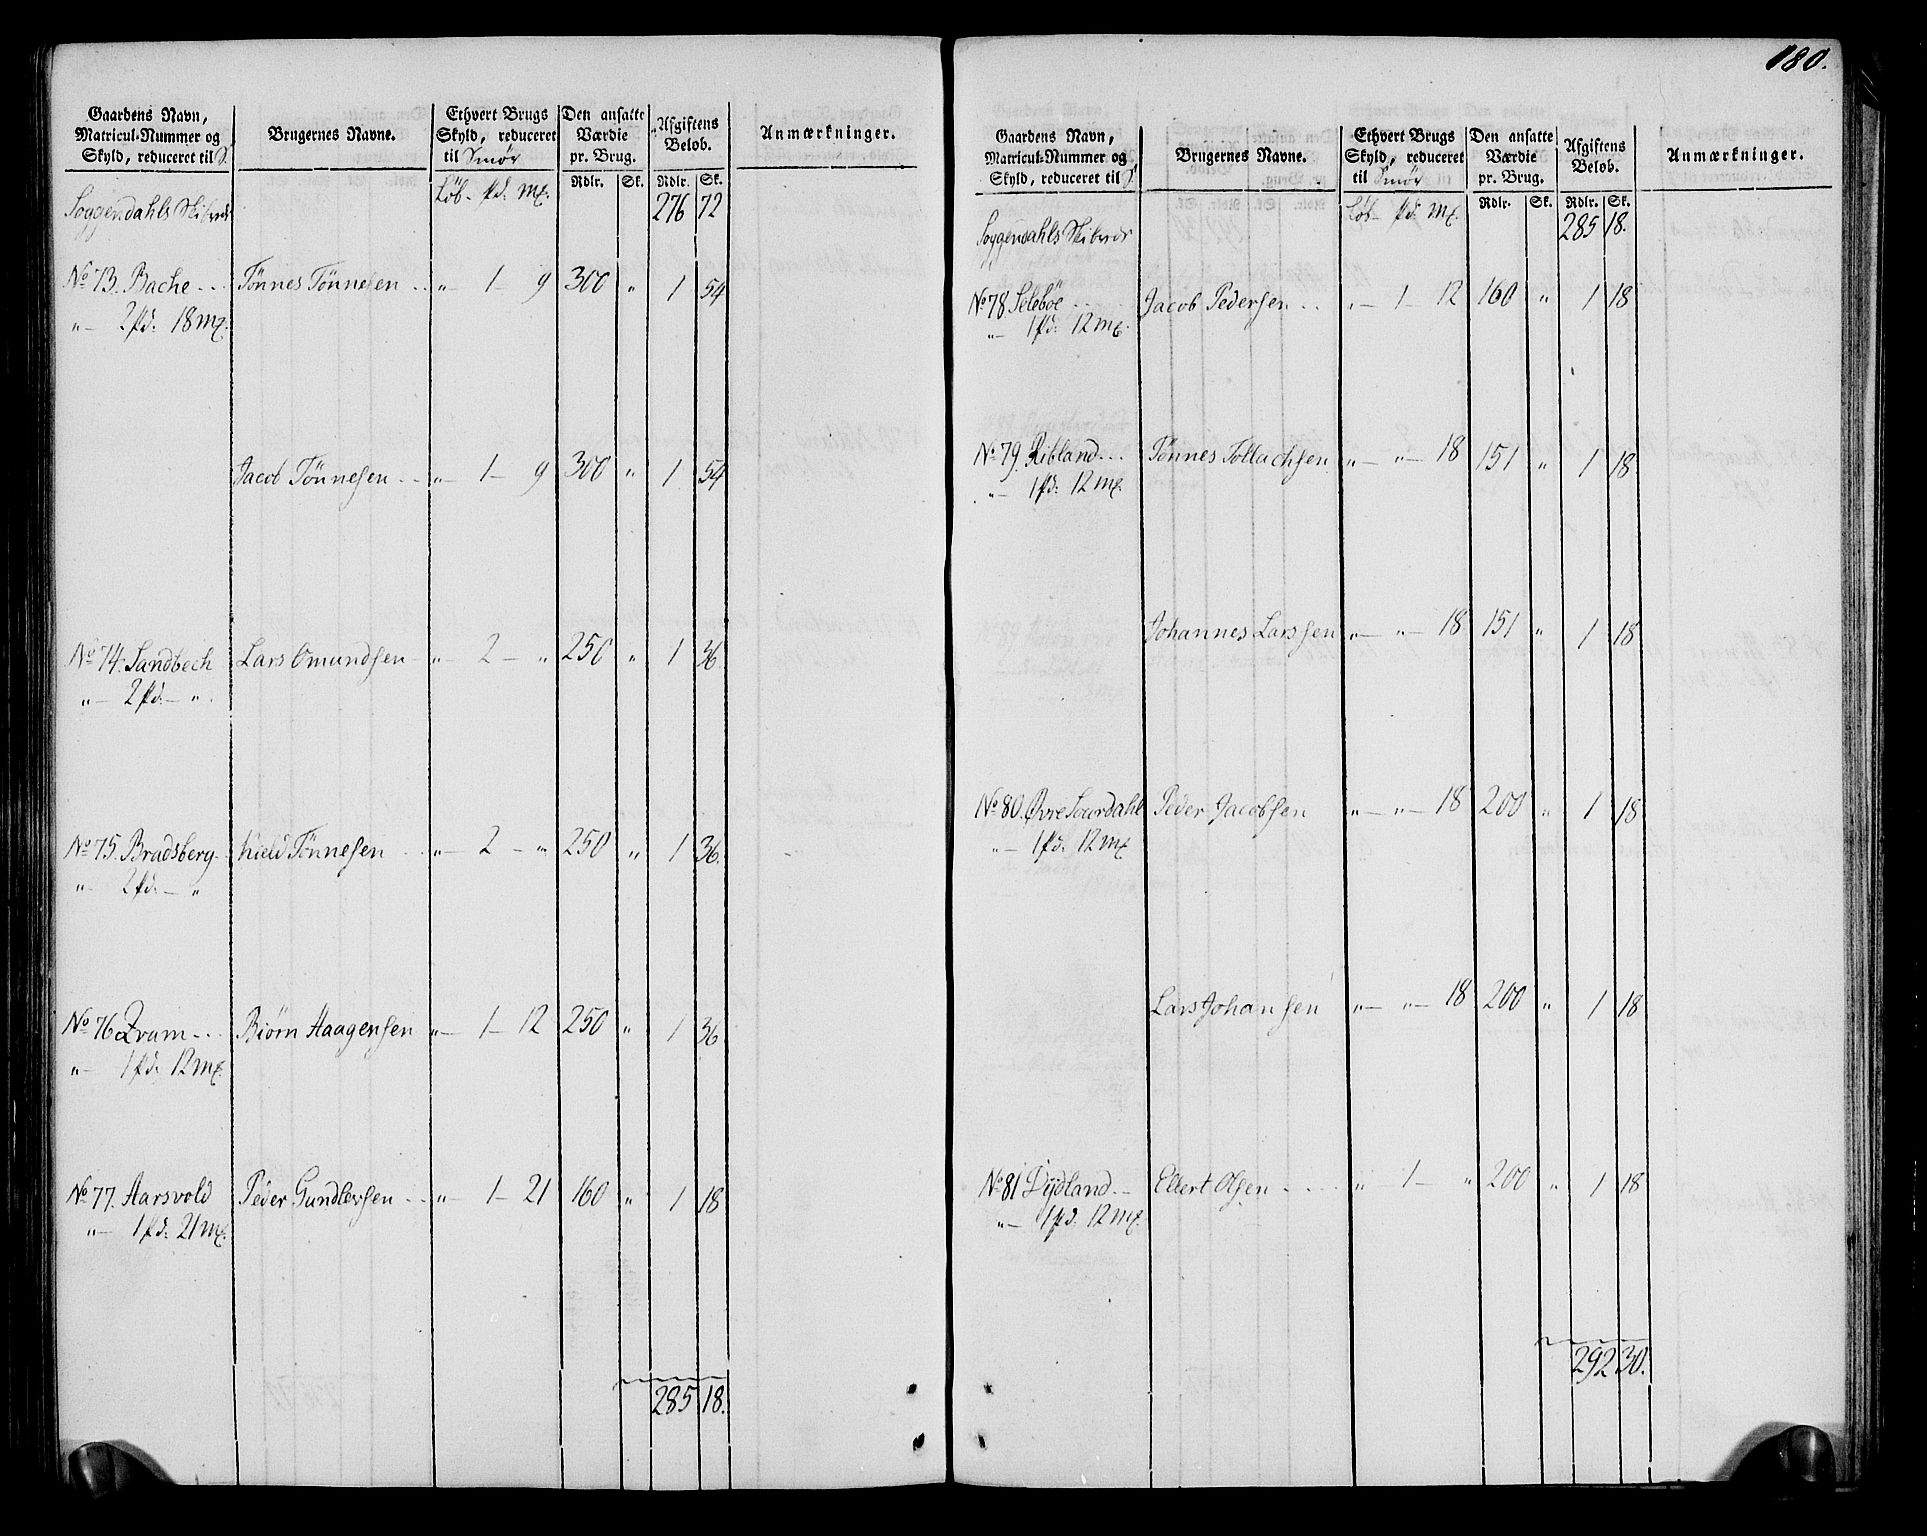 Gaardens Navn,
Matricul-Nummer og
Skyld, reduceret til S.
Brugernes Navne.
Ethvert Brugs
Skyld, reduceret
til Smør
Den ansatte
Værdie
pr. Brug.
Afgiftens
Beløb.
Anmærkninger.
Løb. - pd: mk.
Rdlr. Sk. Rdlr. Sk.
Soggendahls Skibrede 276 72
No 73. Bache - - - Tønnes Tønnesen - - „ — 1 — 9 300 „ 1 54
„ — 2 pd: 18 mk.
Jacob Tønnesen - - „ — 1 — 9 300 „ 1 54
No 74. Sandbech Lars Omundsen - „ — 2 — „ 250 „ 1 36.
„ — 2 pd: — „
No 75. Bradsberg - Kield Tønnesen - - „ — 2 — „ 250 „ 1 36.
„ — 2 pd: — „
No 76. Qvam - - - Biørn Haagensen „ — 1 — 12 250 „ 1 36
„ — 1 pd: 12 mk.
No 77. Aarsvold Peder Gundlersen - - „ — 1 — 21 160 „ 1 18
„ — 1 pd: 21 mk.
285 18.
180.
Gaardens Navn,
Matricul-Nummer og
Skyld, reduceret til S.
Brugernes Navne.
Ethvert Brugs
Skyld, reduceret
til Smør
Den ansatte
Værdie
pr. Brug.
Afgiftens
Beløb.
Anmærkninger.
Løb - pd: mk.
Rdlr. Sk. Rdlr. Sk.
Soggendahls Skibrede 285 18.
No 78 Seleböe - - - Jacob Pedersen - - „ — 1 — 12 160 „ 1 18
„ — 1 pd: 12 mk.
No 79. Ribland - - - Tønnes Tollachsen „ — „ — 18 151 „ 1 18
„ — 1 pd: 12 mk.
Johannes Larssen „ — „ — 18 151 „ 1 18
No 80. Øvre Suurdahl Peder Jacobsen „ — „ — 18 200 „ 1 18
„ — 1 pd: 12 mk
Lars Johansen „ — „ — 18 200 „ 1 18
No 81 Dydland - - Ellert Olsen - - - - „ — 1 — „ 200 „ 1 18
„ — 1 pd. 12 mk.
292 30.